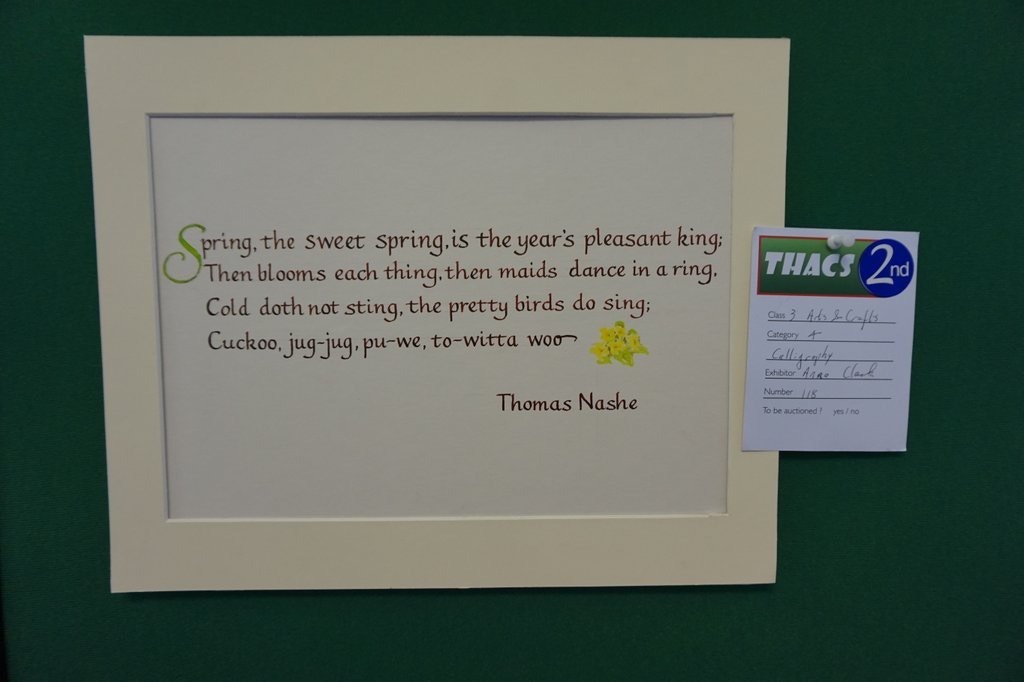 Spring, the sweet spring, is the year's pleasant king;
Then blooms each thing, then maids dance in a ring,
Cold doth not sting, the pretty birds do sing;
Cuckoo, jug-jug, pu-we, to-witta woo
Thomas Nashe
THACS 2nd
Class 3 Arts & Crafts
Category A
Calligraphy
Exhibitor Anne Clark
Number 118
To be auctioned? yes / no